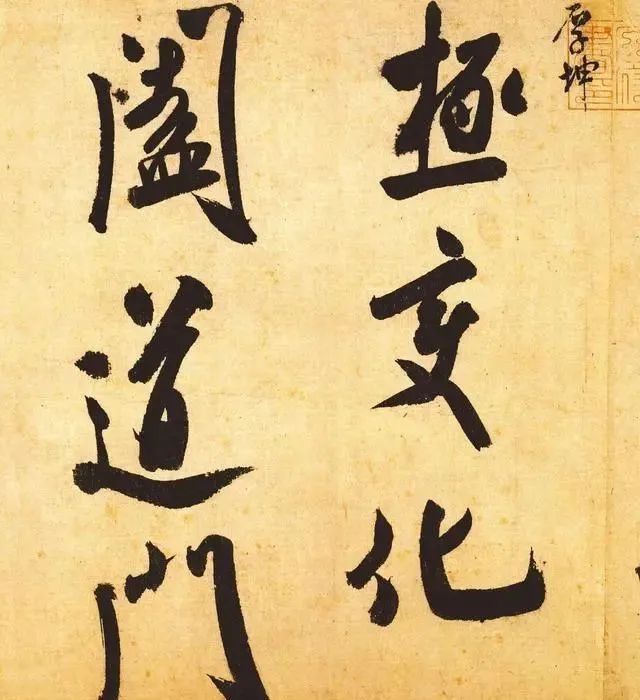 厚坤
極变化
闔道門